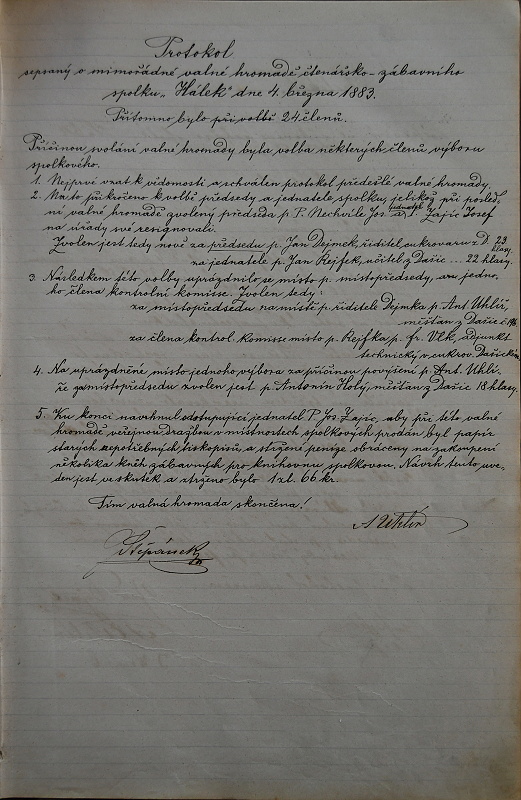 Protokol
sepsaný o mimořádné valné hromadě čtenářsko-zábavního
spolku „Hálek" dne 4. března 1883.
Přítomno bylo při volbě 24 členů.
Příčinou svolání valné hromady byla volba některých členů výboru
spolkového.
1. Nejprvé vzat k vědomosti a schválen protokol předešlé valné hromady.
2. Na to přikročeno k volbě předsedy a jednatele spolku, jelikož při posled-
ní valné hromadě zvolený předseda p. P. Nechvíle Jos. a jednatel P. Zajíc Josef
na úřady své resignovali.
Zvolen jest tedy nově za předsedu p. Jan Dejmek, ředitel cukrovaru z D. 23 hlasy.
za jednatele p. Jan Rejfek, učitel z Dašic ... 22 hlasy.
3. Následkem této volby uprázdnilo se místo p. místopředsedy, a jedno-
ho člena kontrolní komisse. Zvolen tedy:
za místopředsedu na místě p. ředitele Dejmka p. Ant. Uhlíř,
měšťan z Dašic
za člena kontrol. komisse místo p. Rejfka p. Fr. Vlk, adjunkt
technický v cukrov. Dašickém
4. Na uprázdněné místo jednoho výbora za příčinou povýšení p. Ant. Uhlí-
ře za místopředsedu zvolen jest p. Antonín Holý, měšťan z Dašic 18 hlasy.
5. Ku konci navrhnul odstupující jednatel P. Jos. Zajíc, aby při této valné
hromadě veřejnou dražbou v místnostech spolkových prodán byl papír
starých nepotřebných tiskopisů, a stržené peníze obráceny na zakoupení
několika kněh zábavných pro knihovnu spolkovou. Návrh tento uve-
den jest ve skutek a strženo bylo 1 zl. 66 kr.
Tím valná hromada skončena!
A Uhlíř
Štěpánek